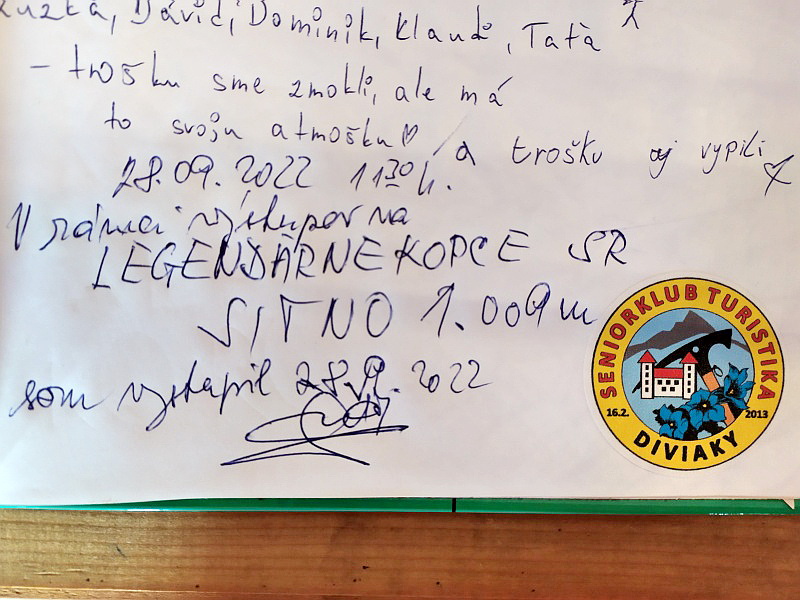 Ruzka, Dávid, Dominik, Klaud, Taťa
– trošku sme zmokli, ale má
to svoju atmošku ♡ a trošku aj vypili
28.09.2022 11³⁰ h.
V rámci výstupov na
LEGENDÁRNE KOPCE SR
SITNO 1.009 m
som vystúpil 28.9.2022
SENIORKLUB TURISTIKA
16.2. 2013
DIVIAKY